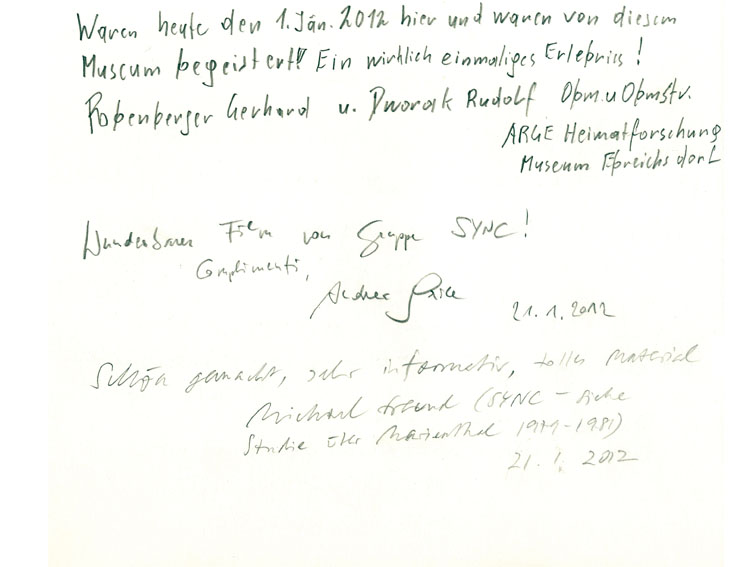 Waren heute den 1. Jän. 2012 hier und waren von diesem
Museum begeistert!! Ein wirklich einmaliges Erlebnis!
Gerhard u. Dworak Rudolf Obm. u Obmstv.
ARGE Heimatforschung
Museum Ebreichsdorf
Wunderbarer Film von Gruppe SYNC!
Complimenti,
21.1.2012
Schön gemacht, sehr informativ, tolles Material
Michael Freund (SYNC – siehe
Studie über Marienthal 1979–1981)
21.1.2012